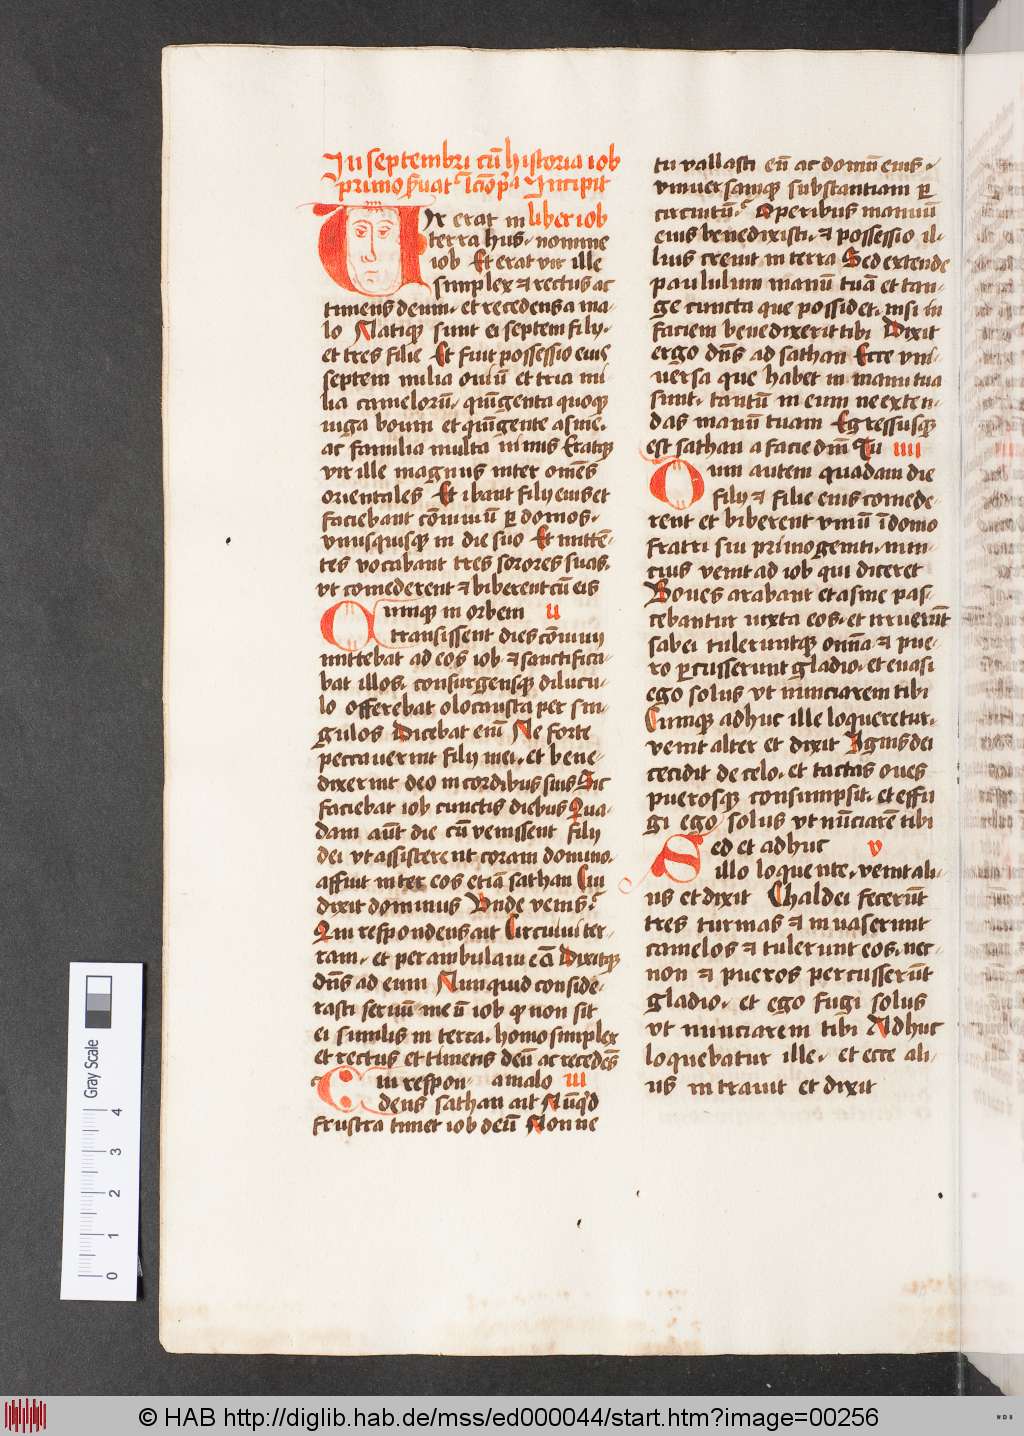 In septembri cū historia iob
primo ẜuat Icōpꝰa Incipit
Uir erat in liber iob
terra hus · nomine
iob Et erat vir ille
simplex ⁊ rectus ac
timens deum · et recedens a ma-
lo Natiqꝫ sunt ei septem filij ·
et tres filie Et fuit possessio eius
septem milia ouiū et tria mi
lia camelorū · quīgenta quoqꝫ
iuga boum et quīgente asine ·
ac familia multa nimis Eratqꝫ
vir ille magnus inter om̄es
orientales Et ibant filij eius et
faciebant cōuiuiū ꝑ domos ·
vnusquisqꝫ in die suo Et mittē-
tes vocabant tres sorores suas ·
vt comederent ⁊ biberent cū eis
Cumqꝫ in orbem ii
transissent dies cōuiuij
mittebat ad eos iob ⁊ sanctifica-
bat illos · consurgensqꝫ dilucu-
lo offerebat olocausta per sin-
gulos Dicebat enī Ne forte
peccauerint filij mei · et bene-
dixerint deo in cordibus suis Sic
faciebat iob cunctis diebus Qua-
dam aūt die cū venissent filij
dei vt assisterent coram domino ·
affuit inter eos etiā sathan Cui
dixit dominus Vnde venis ?
Qui respondens ait Circuiui ter-
ram · et perambulaui eā Dixitqꝫ
dn̄s ad eum Nunquid conside-
rasti seruū meū iob qꝫ non sit
ei similis in terra · homo simplex
et rectus et timens deū ac recedēs
Cui respon- a malo iii
dens sathan ait Nūqͥd
frustra timet iob deū Nonne
tu vallasti eū ac domū eius ·
vniuersamqꝫ substantiam ꝑ
circuitū ? Operibus manuū
eius benedixisti · ⁊ possessio il-
lius creuit in terra Sed extende
paululum manū tuā et tan-
ge cuncta que possidet · nisi in
faciem benedixerit tibi Dixit
ergo dn̄s ad sathan Ecce vni-
uersa que habet in manu tua
sunt · tantū in eum ne exten-
das manū tuam Egressusqꝫ
est sathan a facie dnī Tu iiii
Cum autem quadam die
filij ⁊ filie eius comede-
rent et biberent vinū ī domo
fratri sui primogeniti · nun-
cius venit ad iob qui diceret
Boues arabant et asine pas-
cebantur iuxta eos · et irruerūt
sabei tuleruntqꝫ omnia ⁊ pue-
ro ꝑcusserunt gladio · et euasi
ego solus vt nunciarem tibi
Cumqꝫ adhuc ille loqueretur ·
venit alter et dixit Ignis dei
cecidit de celo · et tactas oues
puerosqꝫ consumpsit · et effu
gi ego solus vt nūciarē tibi
Sed et adhuc v
illo loquente · venit ali-
us et dixit Chaldei fecerūt
tres turmas ⁊ inuaserunt
camelos ⁊ tulerunt eos · nec-
non ⁊ pueros percusserūt
gladio · et ego fugi solus
vt nunciarem tibi Adhuc
loquebatur ille · et ecce ali-
us intrauit et dixit
Gray Scale
0 1 2 3 4
© HAB http://diglib.hab.de/mss/ed000044/start.htm?image=00256